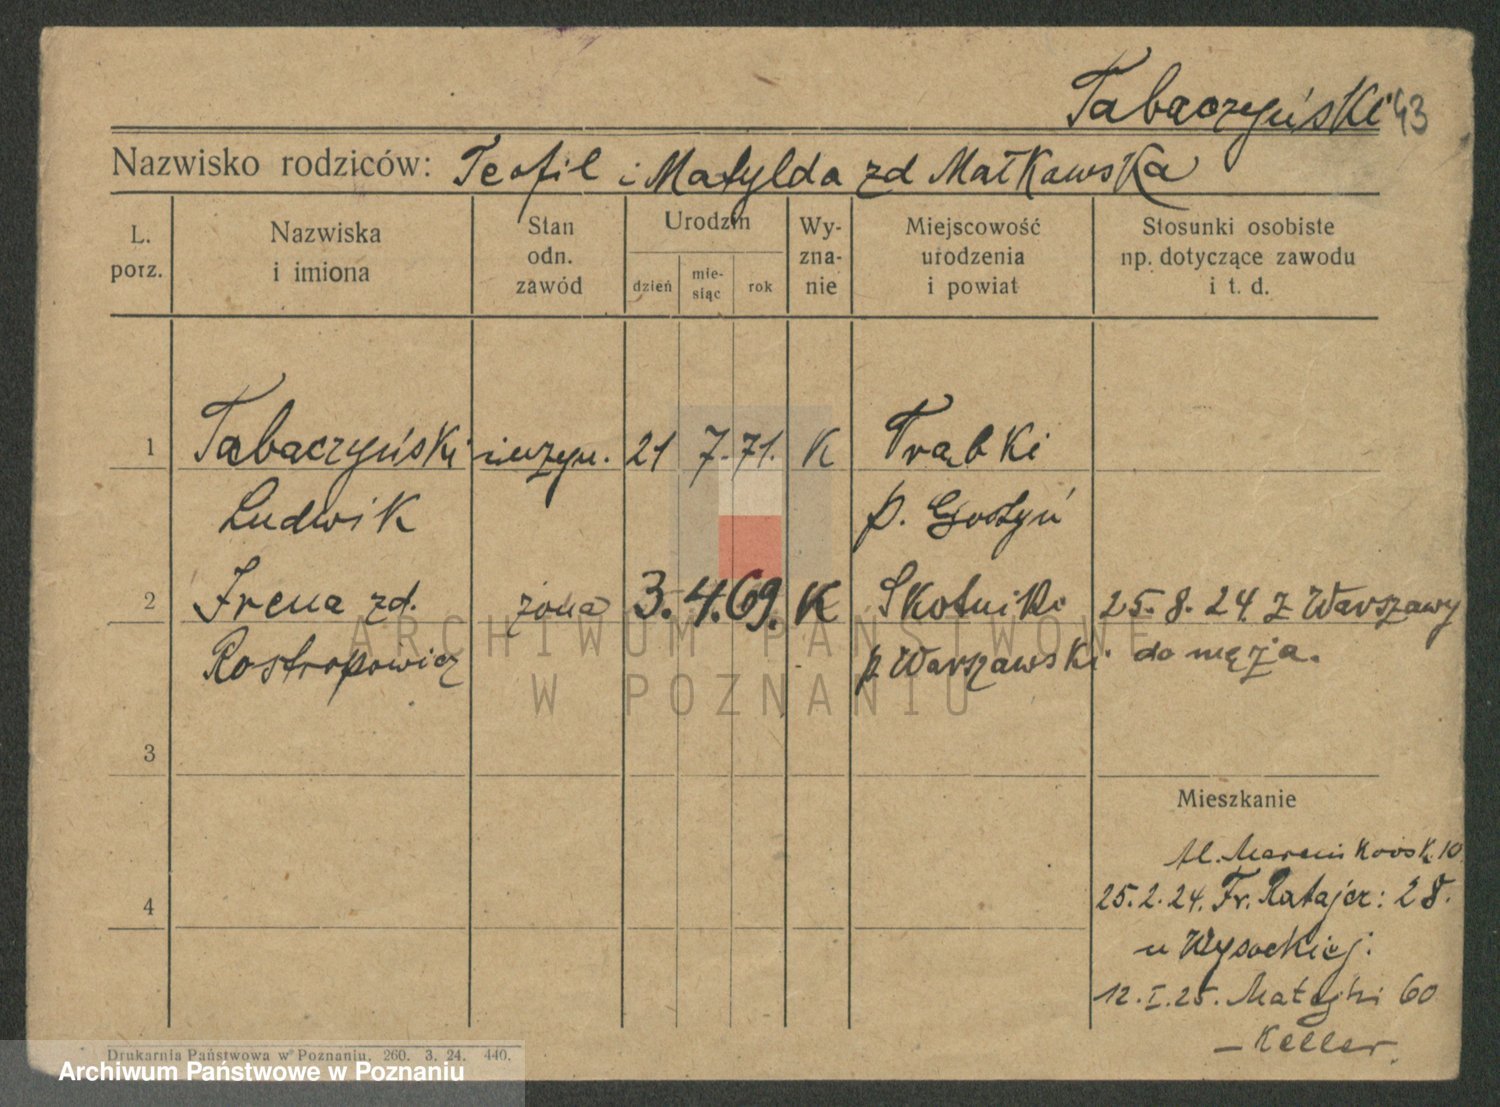 Tabaczyński 43
Nazwisko rodziców: Teofil i Matylda zd Małkowska
L. porz.
Nazwiska i imiona
Stan odn. zawód
Urodzin
dzień
mie-siąc
rok
Wy-zna-nie
Miejscowość urodzenia i powiat
Stosunki osobiste np. dotyczące zawodu i t. d.
1 Tabaczyński inżyn. 21 7. 71. K Trąbki
Ludwik p. Gostyń
2 Irena zd. żona 3. 4. 69. K Skotniki 25. 8. 24 z Warszawy
Rostropowicz p Warszawski do męża.
3
Mieszkanie
Al. Marcinkowsk. 10
4 25. 2. 24. Fr. Ratajcz: 28.
u Wysockiej.
12. I. 25. Matejki 60
– Keller.
ARCHIWUM PAŃSTWOWE
W POZNANIU
Drukarnia Państwowa w Poznaniu. 260. 3. 24. 440.
Archiwum Państwowe w Poznaniu